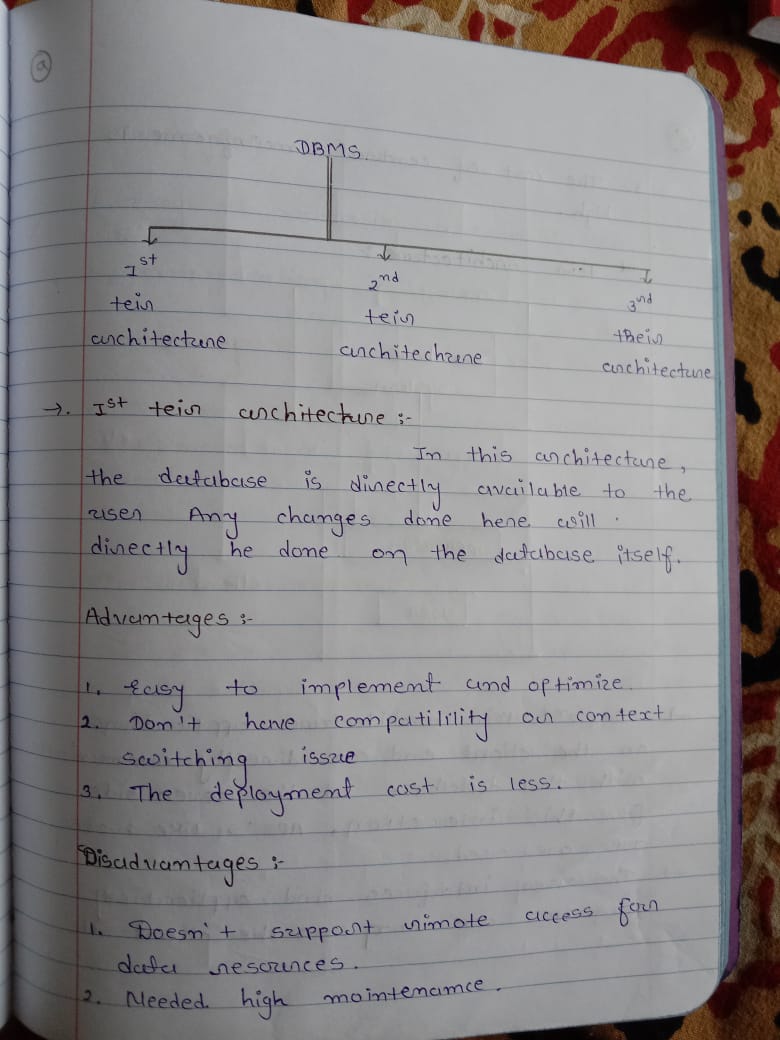 a
DBMS.
1st 2nd 3nd
teir teir their
architecture architechure architecture
→. Ist teir architecture :-
In this architecture,
the database is directly available to the
user Any changes done here will.
directly be done on the database itself.
Advantages :-
1. Easy to implement and optimize.
2. Don't have compatilility or context
switching issue
3. The deployment cost is less.
Disadvantages :-
1. Doesn't support rimote access for
data resources.
2. Needed high maintenamce.